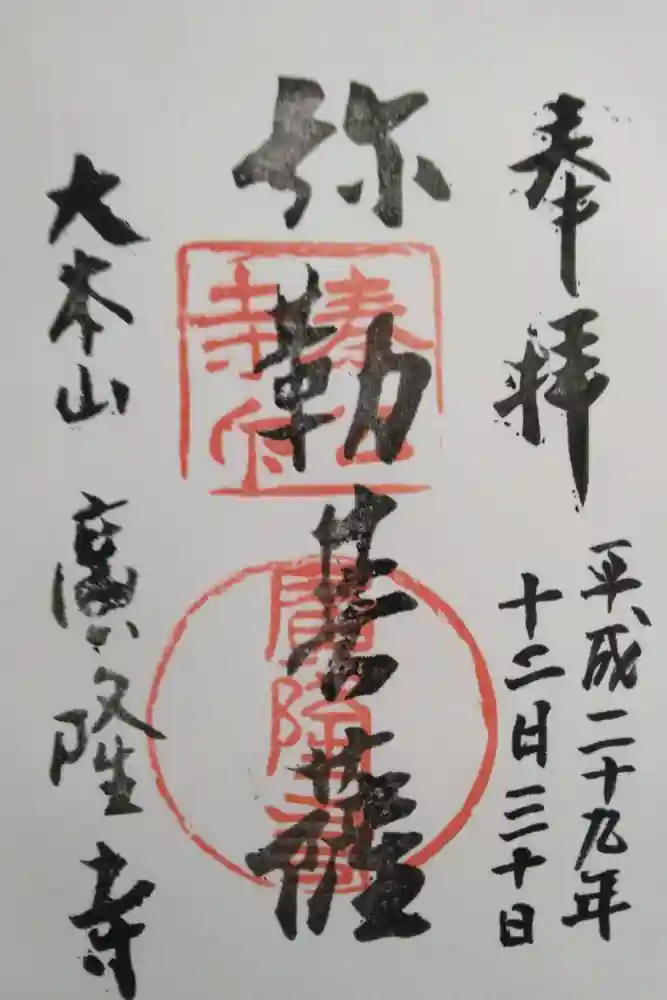 奉拝
平成二十九年
十二日三十日
弥勒菩薩
廣隆寺
大本山 廣隆寺